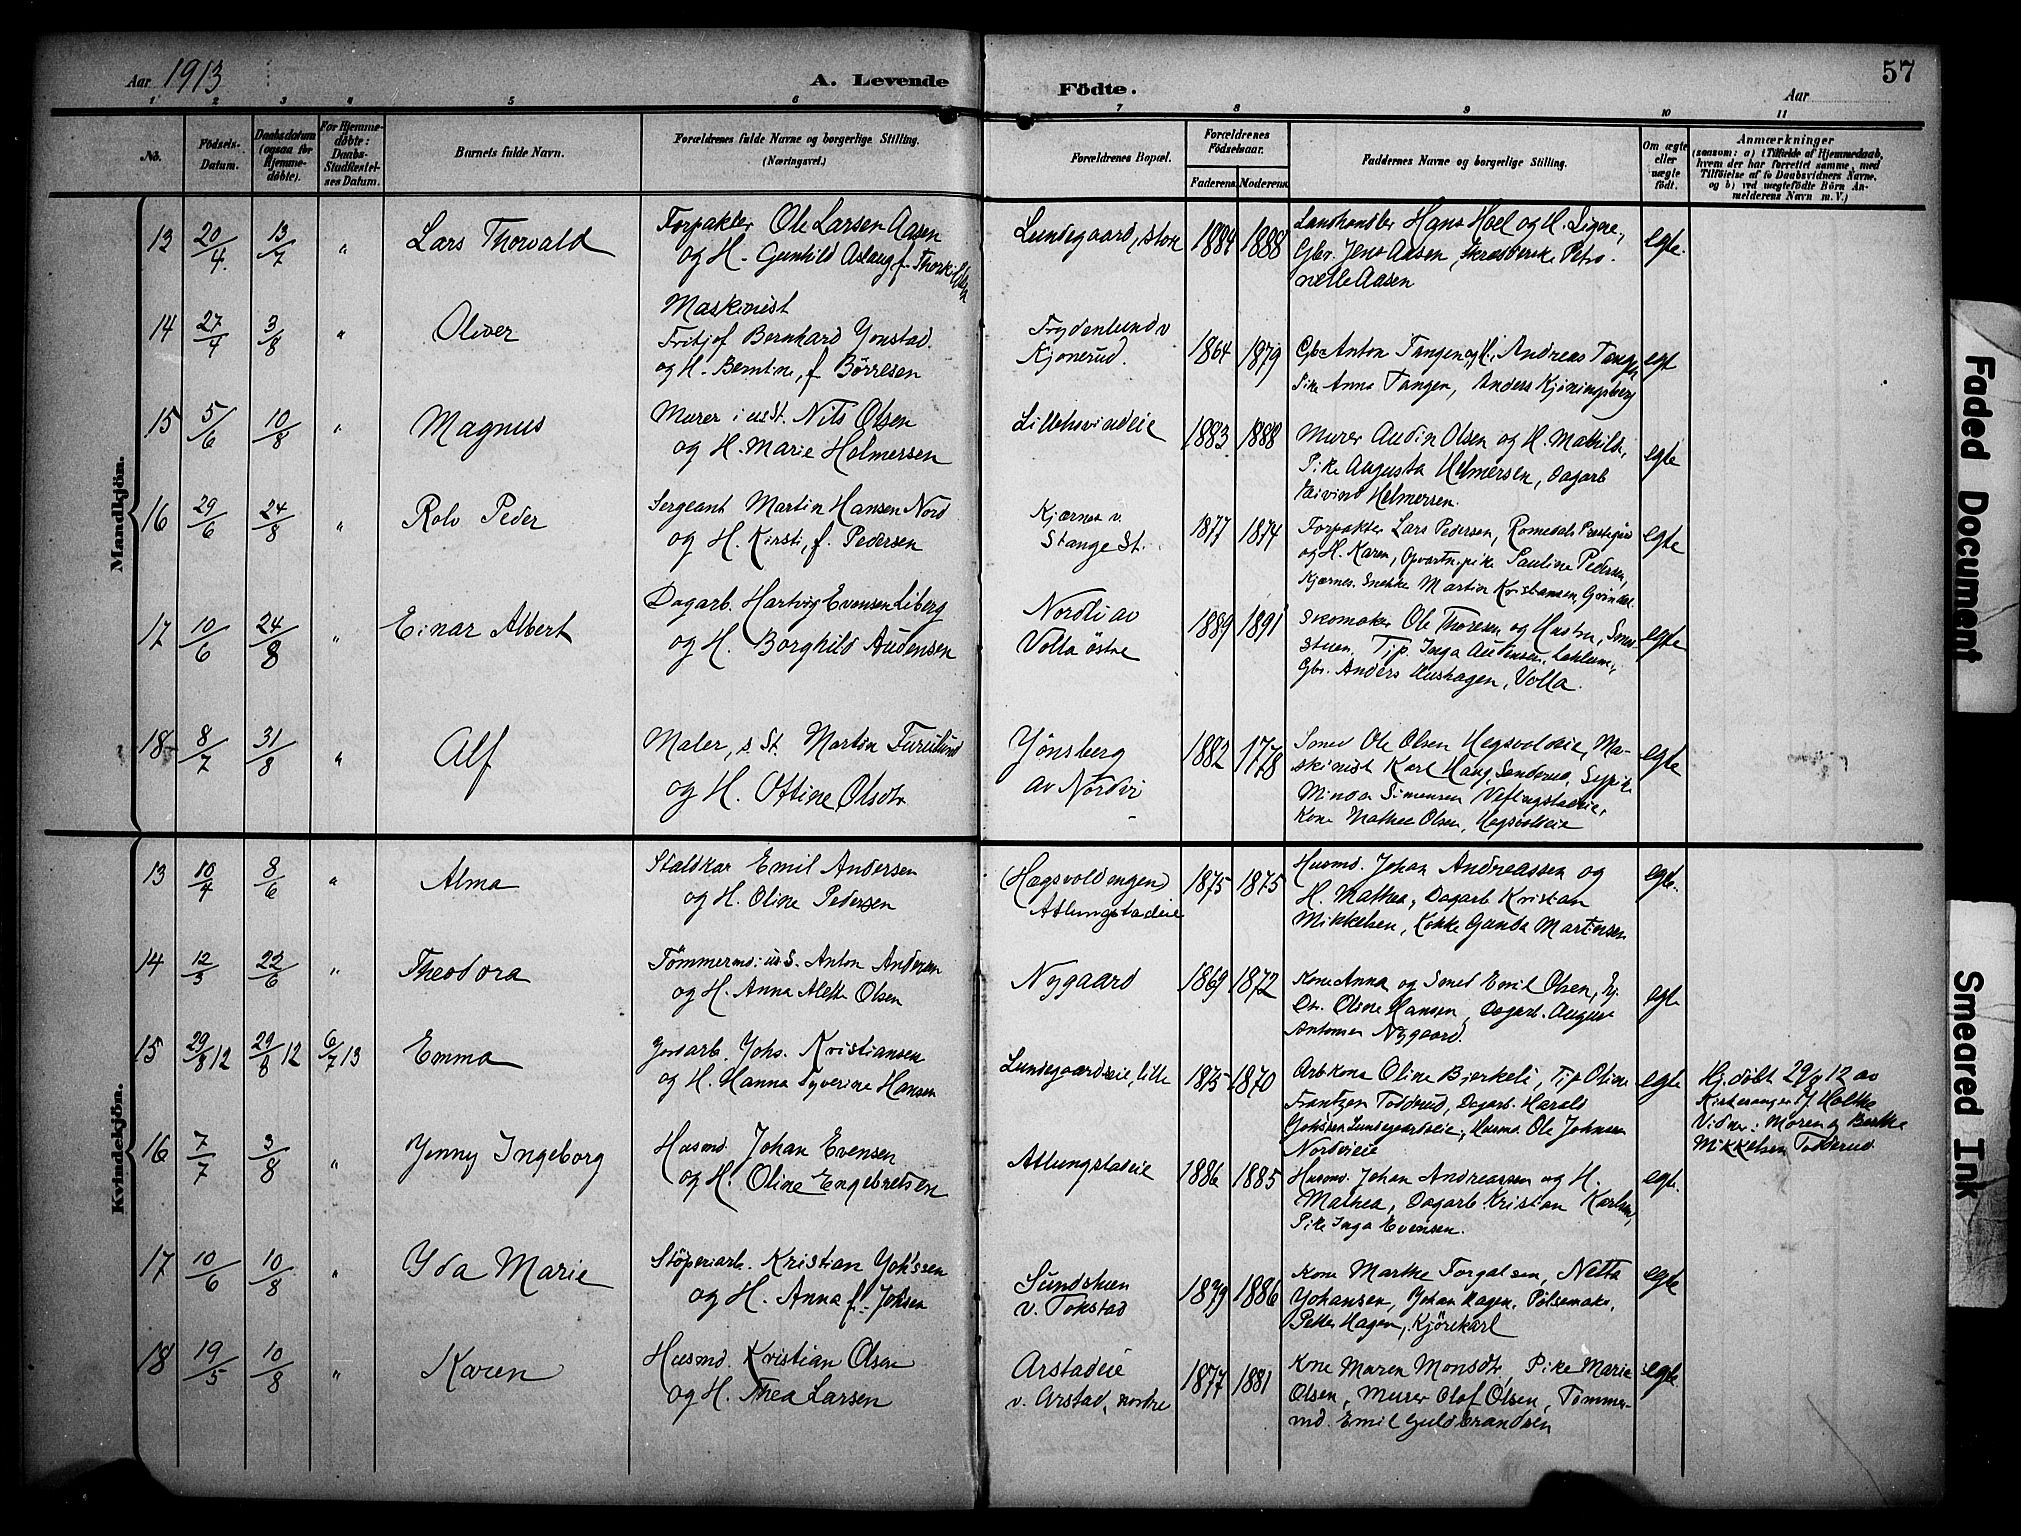 Aar 1913
A. Levende
Födte.
Aar
57
1 2 3 4 5 6 7 8 9 10 11
No.
Födsels-Datum.
Daabsdatum (ogsaa for Hjemme-döbte).
For Hjemme-döbte: Daabs-Stadfæstel-ses Datum.
Barnets fulde Navn.
Forældrenes fulde Navne og borgerlige Stilling. (Næringsvei.)
Forældrenes Bopæl.
Forældrenes Födselsaar.
Faderens. Moderens.
Faddernes Navne og borgerlige Stilling.
Om ægte eller uægte födt.
Anmærkninger
(saasom: a) i Tilfælde af Hjemmedaab,
hvem der har forrettet samme, med
Tilföielse af to Daabsvidners Navne.
og b) ved uægtefödte Börn An-
melderens Navn m. V.)
Mandkjön.
13 20/4. 13/7 " Lars Thorvald
Forpakter Ole Larsen Aasen
og H. Gunhild Aslaug f.
Lundegaard, store 1884 1888
Landhandler Hans Hoel og H. Signe,
Gbr. Jens Aasen, Petro-
nelle Aasen
egte.
14 27/4 3/8 " Oliver
Maskinist
Fritjof Bernhard Ynstad.
og H. Berntine, f. Börresen
Frydenlund v
Kjonerud. 1864 1879
Gbr Anton Tangen og H., Andreas Tangen
Pike Anna Tangen, Anders Kjoningsberg
egt
15 5/6 10/8 " Magnus
Murer i us St. Nils Olsen
og H. Marie Holmersen
Lillehvindeie 1883 1888
Murer Audin Olsen og H. Mathilde,
Pike Augusta Helmersen, Dagarb
Eivind Helmersen.
egte
16 29/6 24/8 " Rolv Peder
Sergeant Martin Hansen Nord
og H. Kirsti, f. Pedersen
Kjærnes v.
Stange St. 1877 1874
Forpakter Lars Pedersen, Romedals Prestegård
og H. Karen, Opvartn.pike Pauline Pedersen,
Kjærnes. Snekke Martin Kristiansen,
egte
17 10/6 24/8 " Einar Albert
Dagarb. Hartvig Evensen Liberg
og H. Borghild Audensen
Nordli av
Volla östre 1889 1891
Skomaker Ole Thoresen og Hustru,
stuen, Tjp. Inga Audensen,
Gbr. Anders Hushagen, Volla.
egte
18 8/7 31/8 " Alf
Maler, s. St. Martin Furulund
og H. Oftine Olsdtr
Yönsberg
av Nordvi 1882 1778
Smed Ole Olsen Hegsvoldeie, Ma-
skinist Karl Haug, Sonderud, Sypike
Minda Simensen Veflingstadeie,
Kone Mathea Olsen, Hegsvoldeie
egte
Kvindekjön.
13 10/4 8/6 " Alma
Staldkar Emil Andersen
og H. Oline Pedersen
(Hegsvoldengen)
Atlungstadeie 1875 1875
Husmd. Johan Andreassen og
H. Mathea, Dagarb Kristian
Mikkelsen, Kokke Gunda Martinsen
egte.
14 12/3 22/6 " Theodora
Tömmermd. i us S. Anton Andersen
og H. Anna Alette Olsen
Nygaard 1869 1872
Kone Anna og Smed Emil Olsen, Gj.
Dtr. Oline Hansen, Dagarb. August
Antonsen Nygaard.
egte
15 29/8 12 29/8 12 6/7 13 Emma
Jordarb. Johs. Kristiansen
og H. Hanna Syverine Hansen
Lundegaardseie, lille 1875 1870
Arb Kona Oline Bjerkeli, Tjp Oline
Frantzen Todderud, Dagarb. Harald
Johssen Lundegaardseie, Husmd. Ole Johnsen
Nordvieie
egte
Hj. döbt 29/8 12 av
Kirkesanger J. Holthe
Vidner: Moren og Berthe
Mikkelsen Todderud
16 7/7 3/8 " Yenny Ingeborg
Husmd Johan Evensen
og H. Oline Engebretsen
Atlungstadeie 1886 1885
Husmd. Johan Andreassen og H.
Mathea, Dagarb Kristian Karlsen,
Pike Inga Evensen.
egte.
17 10/6 10/8 " Yda Marie
Stöperiarb. Kristian Yohssen
og H. Anna f. Johsen
Sundstuen
v. Tokstad 1879 1886
Kone Marthe Torgalsen, Netta
Yohansen, Johan Hagen, Pölsemaker,
Petter Hagen, Kjörekarl
egte
18 19/5 10/8 " Karen
Husmd. Kristian Olsen
og H. Thea Larsen
Arstadeie
v. Arstad, nordre 1877 1881
Kone Maren Monsdtr, Pike Marie
Olsen, Murer Olof Olsen, Tömmer-
md. Emil Guldbrandsen
egte.
Faded Document
Smeared Ink